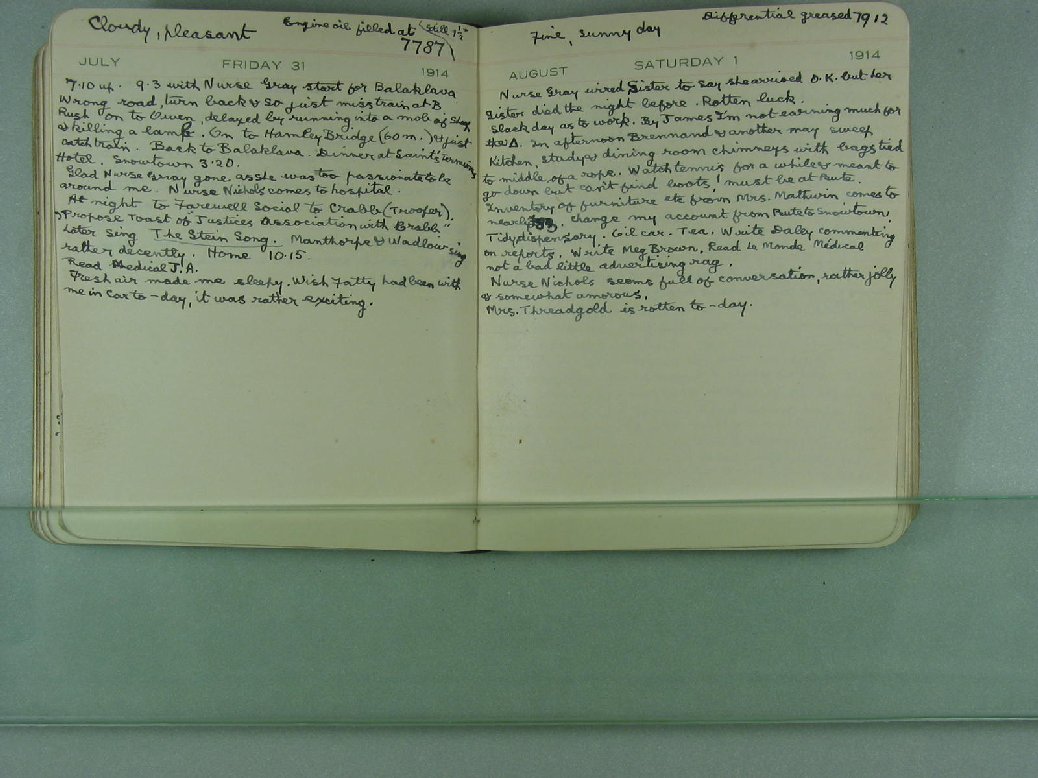 Cloudy, pleasant
Engine oil filled at "Still 1½"
7787
JULY FRIDAY 31 1914
7.10 up. 9.3 with Nurse Gray start for Balaklava
Wrong road, turn back & so just miss train at B.
Rush on to Owen, delayed by running into a mob of sheep
& killing a lamb. On to Hamley Bridge (60 m.) & just
catch train. Back to Balaklava. Dinner at Saint's
Hotel. Snowtown 3.20.
Glad Nurse Gray gone as she was too passionate to be
around me. Nurse Nichols comes to hospital.
At night to Farewell Social to Crabb (Trooper).
Propose Toast of "Justices Association with Crabb."
Later sing The Stein Song. Manthorpe & Wadlow sing
rather decently. Home 10.15
Read Medical J. A.
Fresh air made me sleepy. Wish Fatty had been with
me in car to-day, it was rather exciting.
Fine, sunny day
Differential greased 7912
AUGUST SATURDAY 1 1914
Nurse Gray wired Sister to say she arrived O.K. but her
sister died the night before. Rotten luck.
Slack day as to work. By James I'm not earning much for
the Δ. In afternoon Brennand & another may sweep
Kitchen, study & dining room chimneys with bags tied
to middle of a rope. Watch tennis for a while & meant to
go down but can't find boots, must be at Pute.
Inventory of furniture etc from Mrs. Mathwin comes to
nearly. Change my account from Pute to Snowtown.
Tidy dispensary. Oil car. Tea. Write Daley commenting
on reports. Write Meg Brown. Read Le Monde Médical
not a bad little advertising rag.
Nurse Nichols seems full of conversation, rather jolly
& somewhat amorous.
Mrs. Threadgold is rotten to-day.